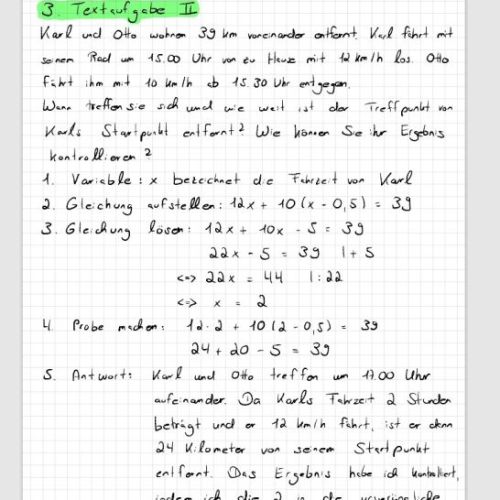 3. Textaufgabe II
Karl und Otto wohnen 39 km voneinander entfernt. Karl fährt mit
seinem Rad um 15.00 Uhr von zu Hause mit 12 km/h los. Otto
fährt ihm mit 10 km/h ab 15.30 Uhr entgegen.
Wann treffen sie sich und wie weit ist der Treffpunkt von
Karls Startpunkt entfernt? Wie können Sie ihr Ergebnis
kontrollieren?
1. Variable: x bezeichnet die Fahrzeit von Karl
2. Gleichung aufstellen: 12x + 10(x - 0,5) = 39
3. Gleichung lösen: 12x + 10x - 5 = 39
22x - 5 = 39 | + 5
<=> 22x = 44 | : 22
<=> x = 2
4. Probe machen: 12·2 + 10(2 - 0,5) = 39
24 + 20 - 5 = 39
5. Antwort: Karl und Otto treffen um 17.00 Uhr
aufeinander. Da Karls Fahrzeit 2 Stunden
beträgt und er 12 km/h fährt, ist er dann
24 Kilometer von seinem Startpunkt
entfernt. Das Ergebnis habe ich kontrolliert,
indem ich die 2 in die ursprüngliche